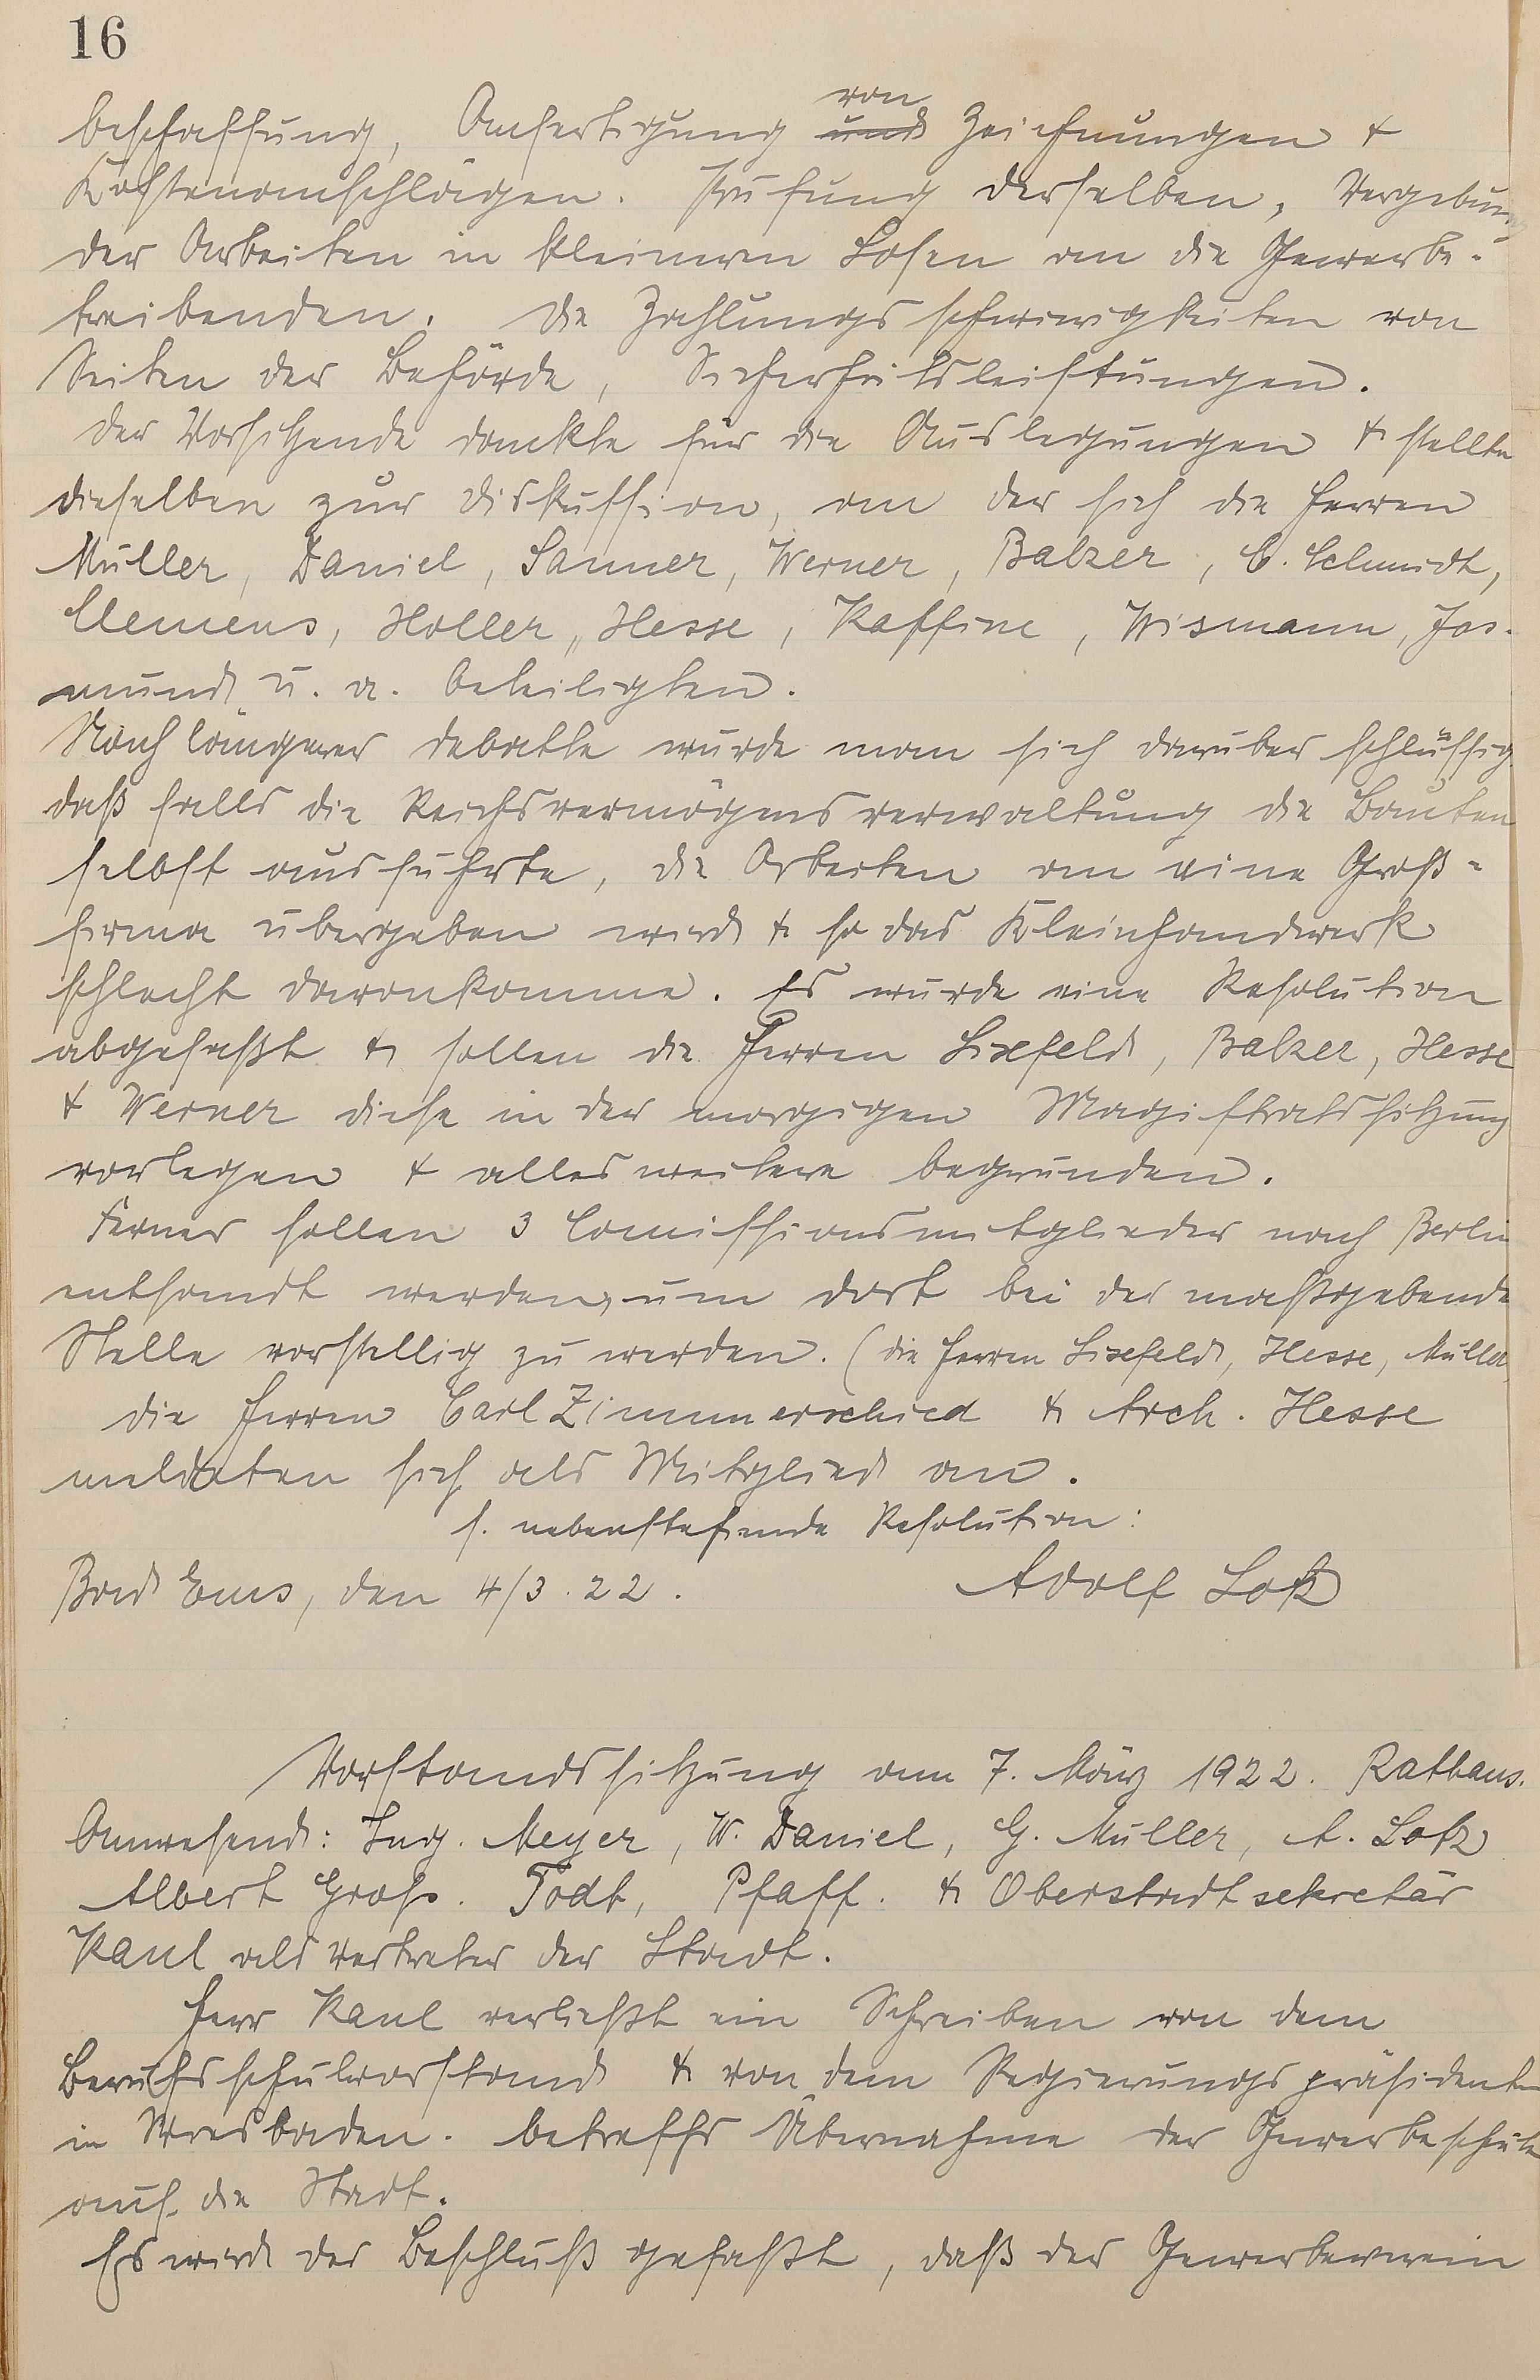 16
beschaffung, Anfertigung von Zeichnungen &
Kostenanschlägen. Prüfung derselben, Vergebung
der Arbeiten in kleineren Losen an die Gewerbe-
treibenden. Die Zahlungsschwierigkeiten von
Seiten der Behörde, Sicherheitsleistungen.
Der Vorsitzende dankte für die Auslegungen & stellte
dieselben zur Diskussion, an der sich die Herren
Müller, Daniel, Sanner, Werner, Balzer, C. Schmidt,
Clemens, Holler, Hesse, Kaffine, Wismann, Jas-
mund u. a. beteiligten.
Nach längerer Debatte wurde man sich darüber schlüssig
daß falls die Reichsvermögensverwaltung die Bauten
selbst ausführte, die Arbeiten an eine Groß-
firma übergeben wird & so das Kleinhandwerk
schlecht davonkomme. Es wurde eine Resolution
abgefaßt & sollen die Herren Lixfeld, Balzer, Hesse
& Werner diese in der morgigen Magistratssitzung
vorlegen & alles weitere begründen.
Ferner sollen 3 Comissionsmitglieder nach Berlin
entsandt werden, um dort bei der maßgebende
Stelle vorstellig zu werden. (die Herren Lixfeld, Hesse, Müller)
Die Herren Carl Zimmerschied & Arch. Hesse
meldeten sich als Mitglied an.
s. nebenstehende Resolution:
Bad Ems, den 4/3. 22. Adolf Lotz
Vorstandssitzung am 7. März 1922. Rathaus.
Anwesend: Ing. Meyer, W. Daniel, G. Müller, A. Lotz
Albert Groß. Todt, Pfaff. & Oberstadtsekretär
Kaul als Vertreter der Stadt.
Herr Kaul verließt ein Schreiben von dem
Berufsschulvorstand & von dem Regierungspräsidenten
in Wiesbaden. betreffs Übernahme der Gewerbeschule
auf die Stadt.
Es wird der Beschluß gefaßt, daß der Gewerbeverein